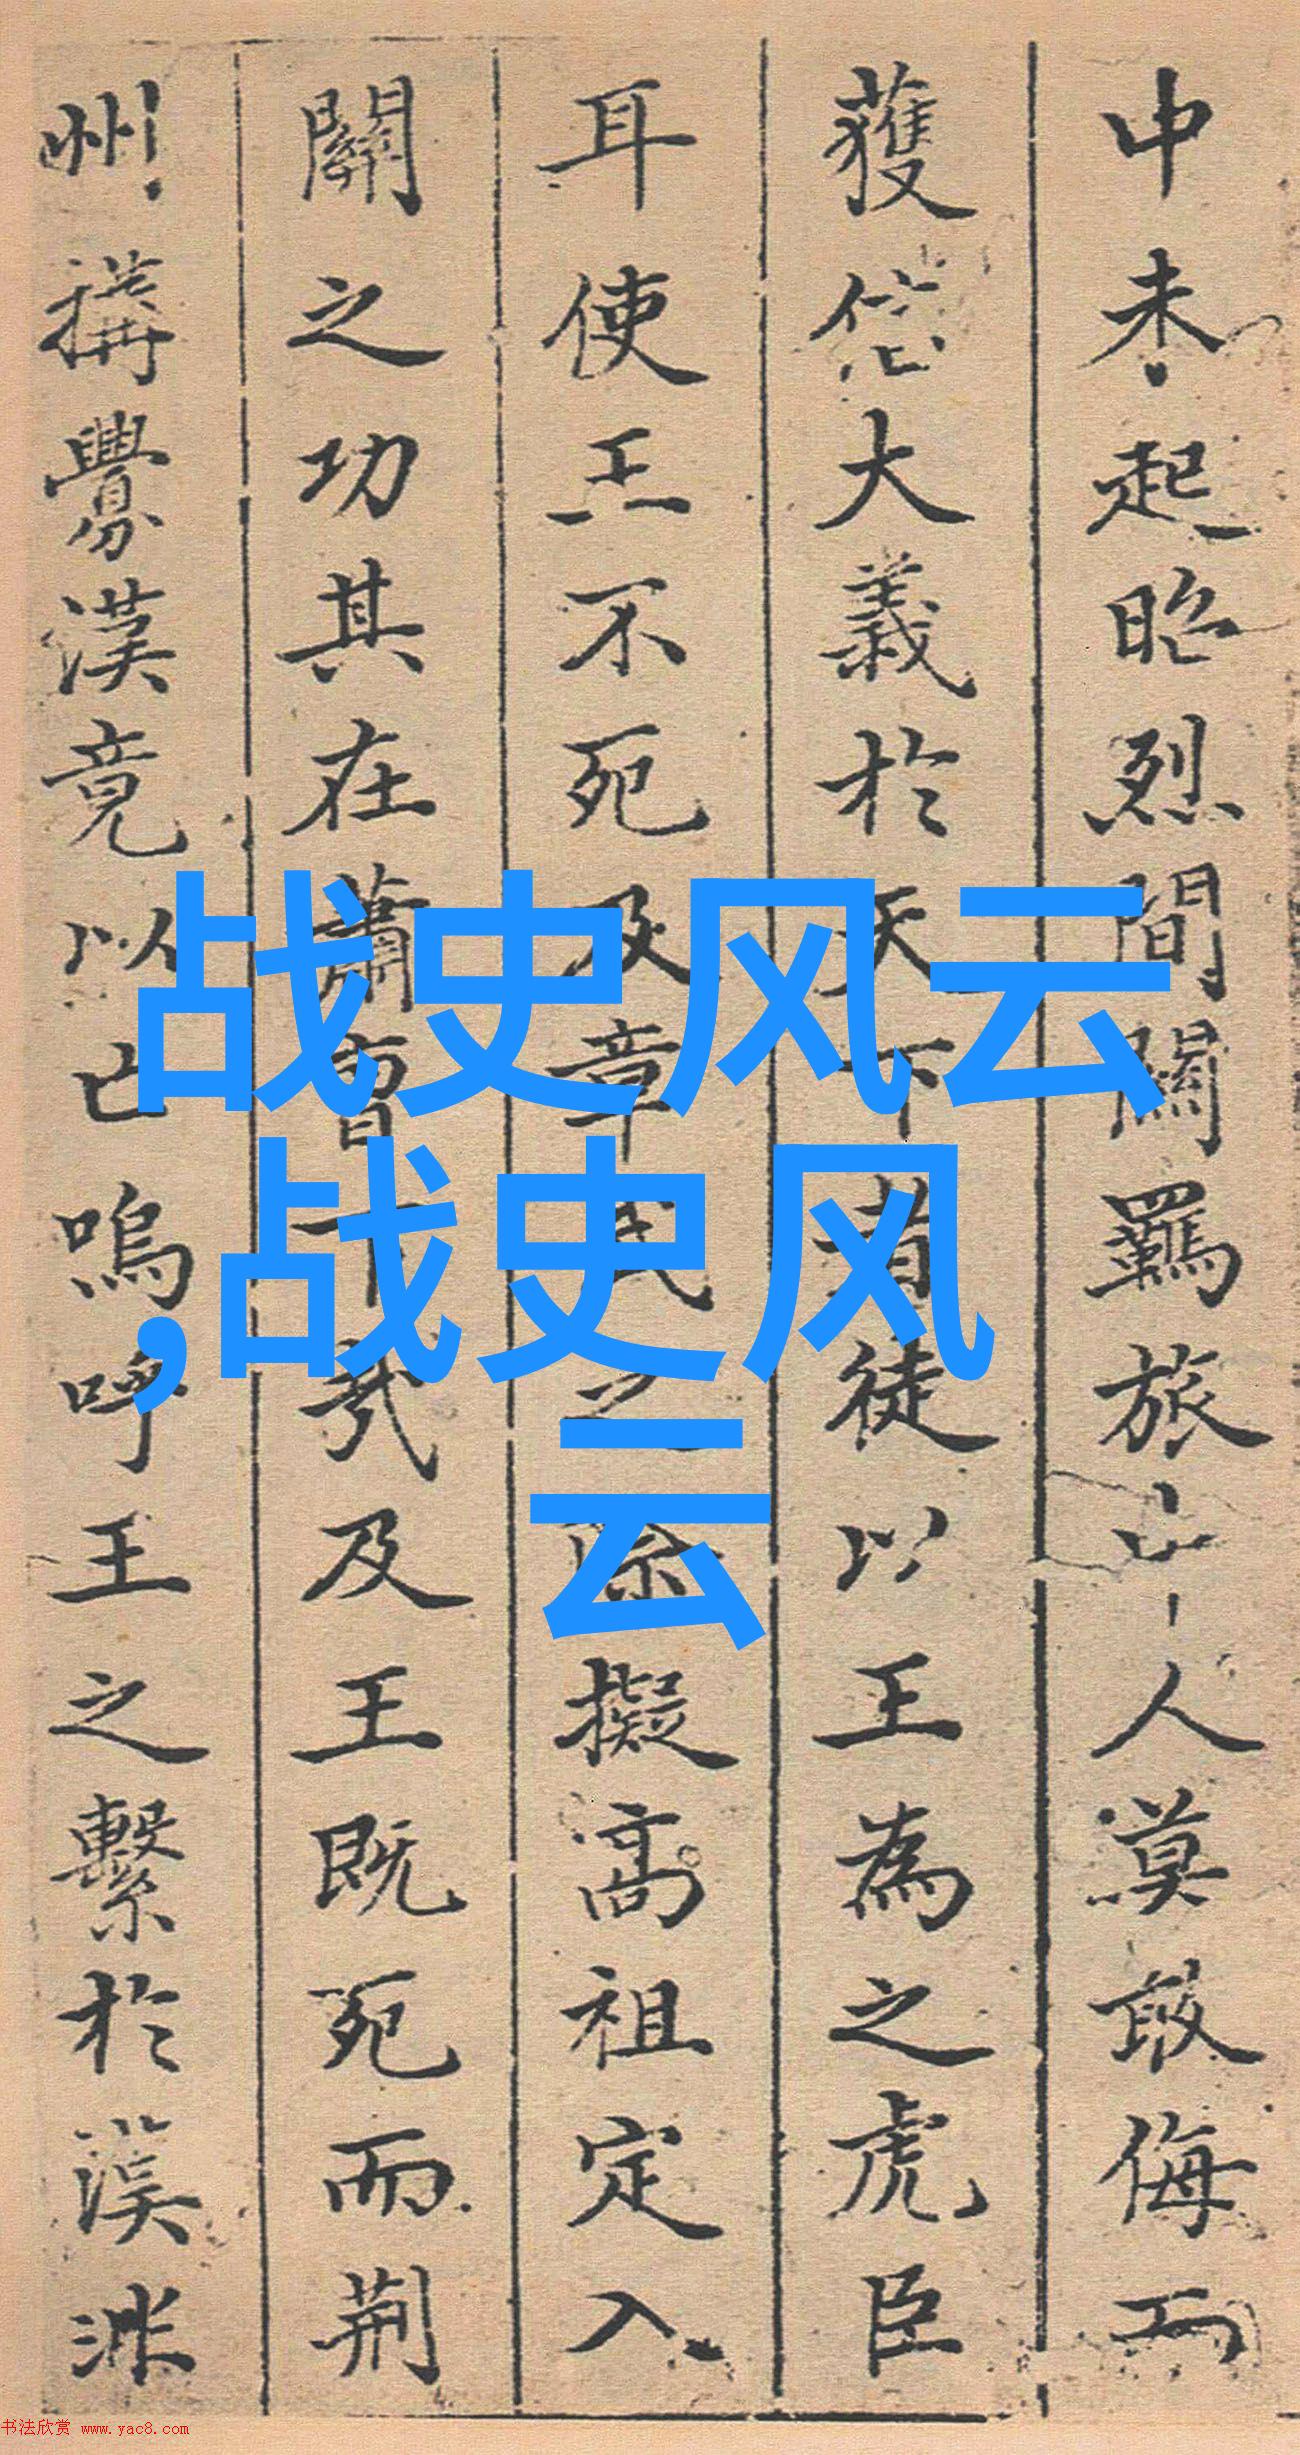 中未起昭烈間關羈旅人莫敢侮而
獲信大義於天下者徒以王為之虎臣
耳使王不死及章武之際擬高祖定入
關之功其在蕭曹下哉及王既死而荆
州搆釁漢竟以亡嗚呼王之繫於漢
战史风云
,战史风
云
书法欣赏 www.yac8.com